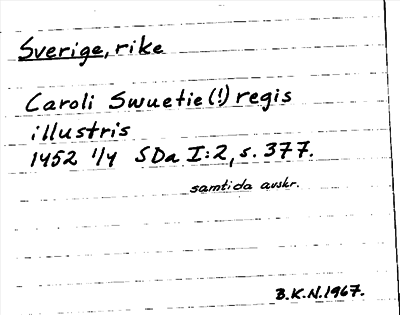 Sverige, rike
Caroli Swuetie (!) regis
illustris
1452 1/4 SDa I:2, s. 377.
samtida avskr.
B.K.N. 1967.